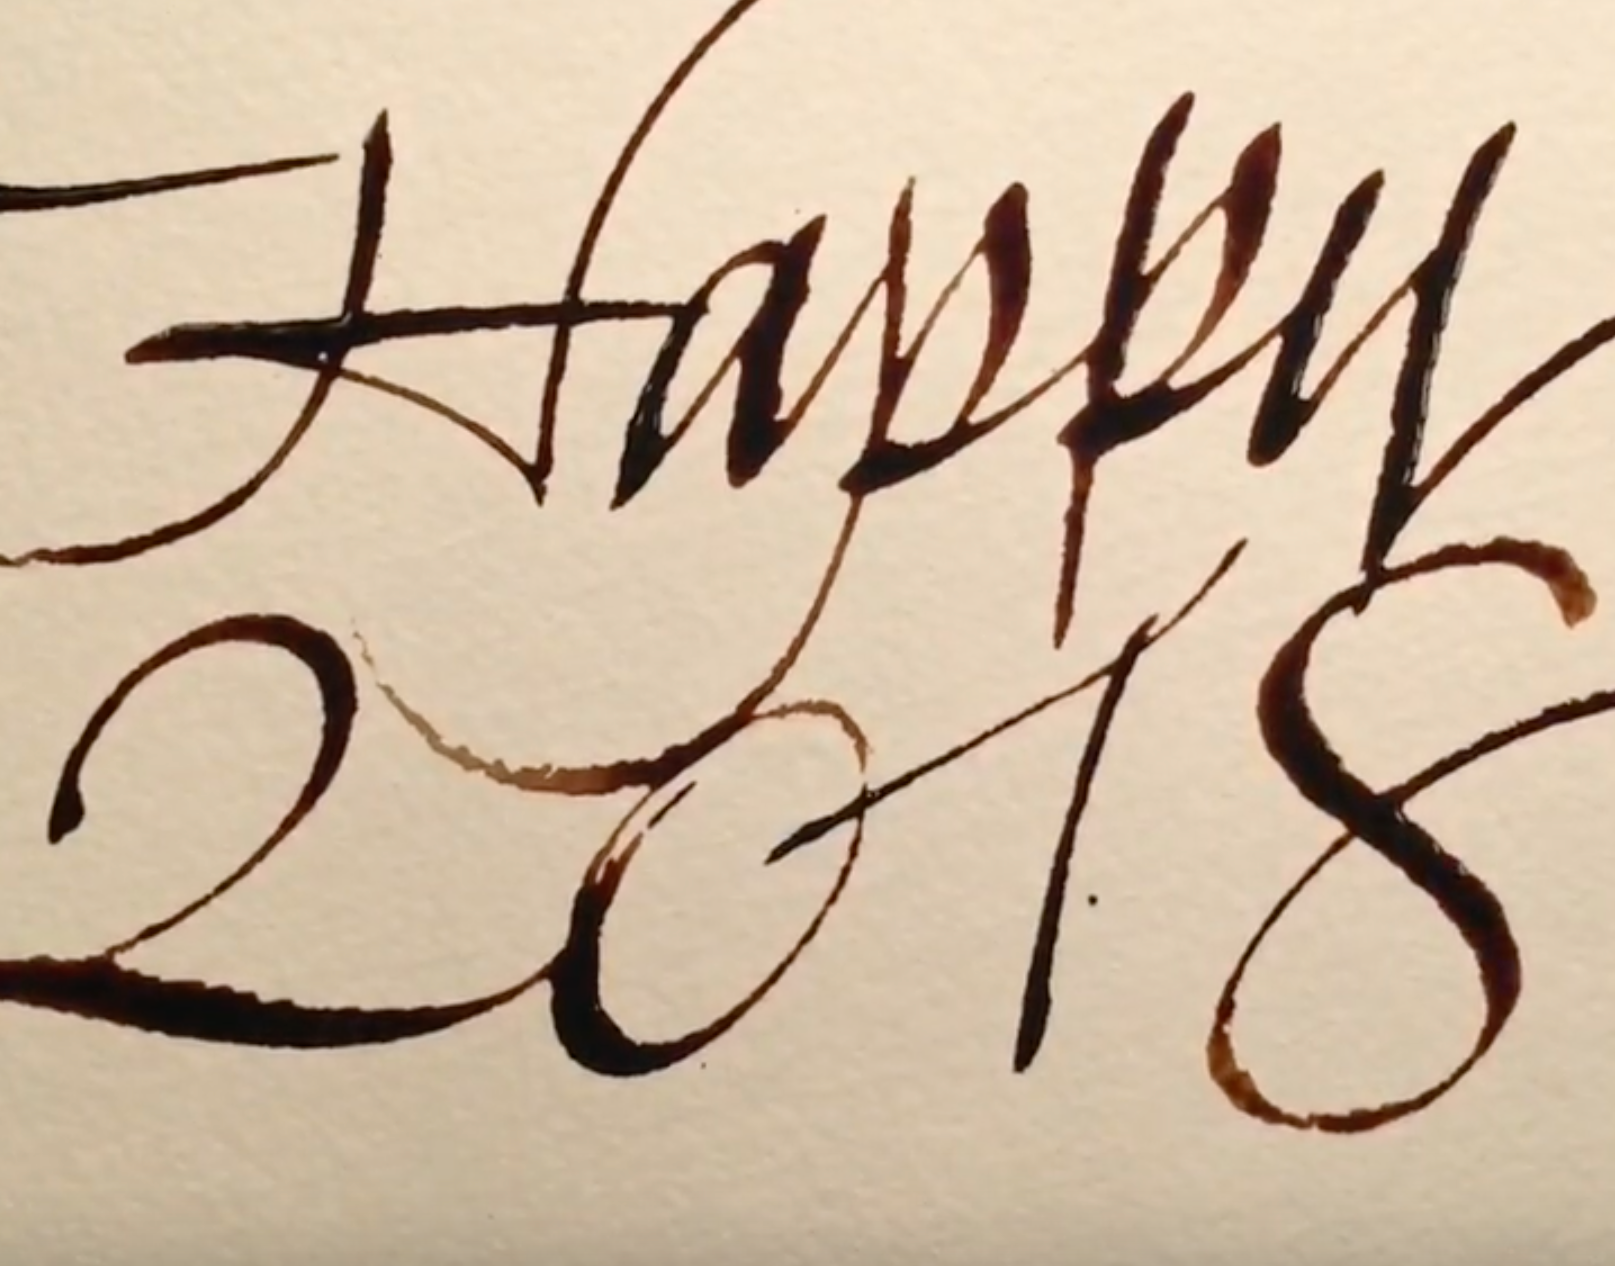 Happy
2018